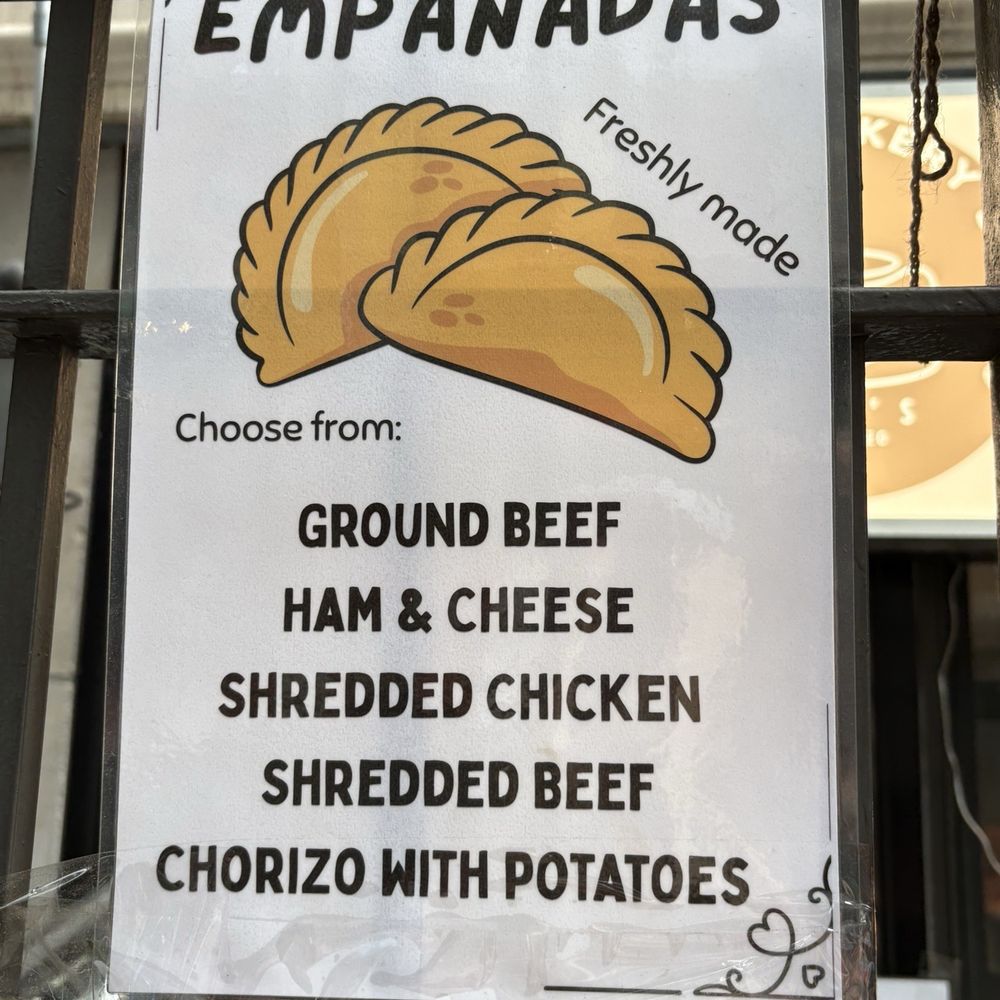 EMPANADAS
Freshly made
Choose from:
GROUND BEEF
HAM & CHEESE
SHREDDED CHICKEN
SHREDDED BEEF
CHORIZO WITH POTATOES